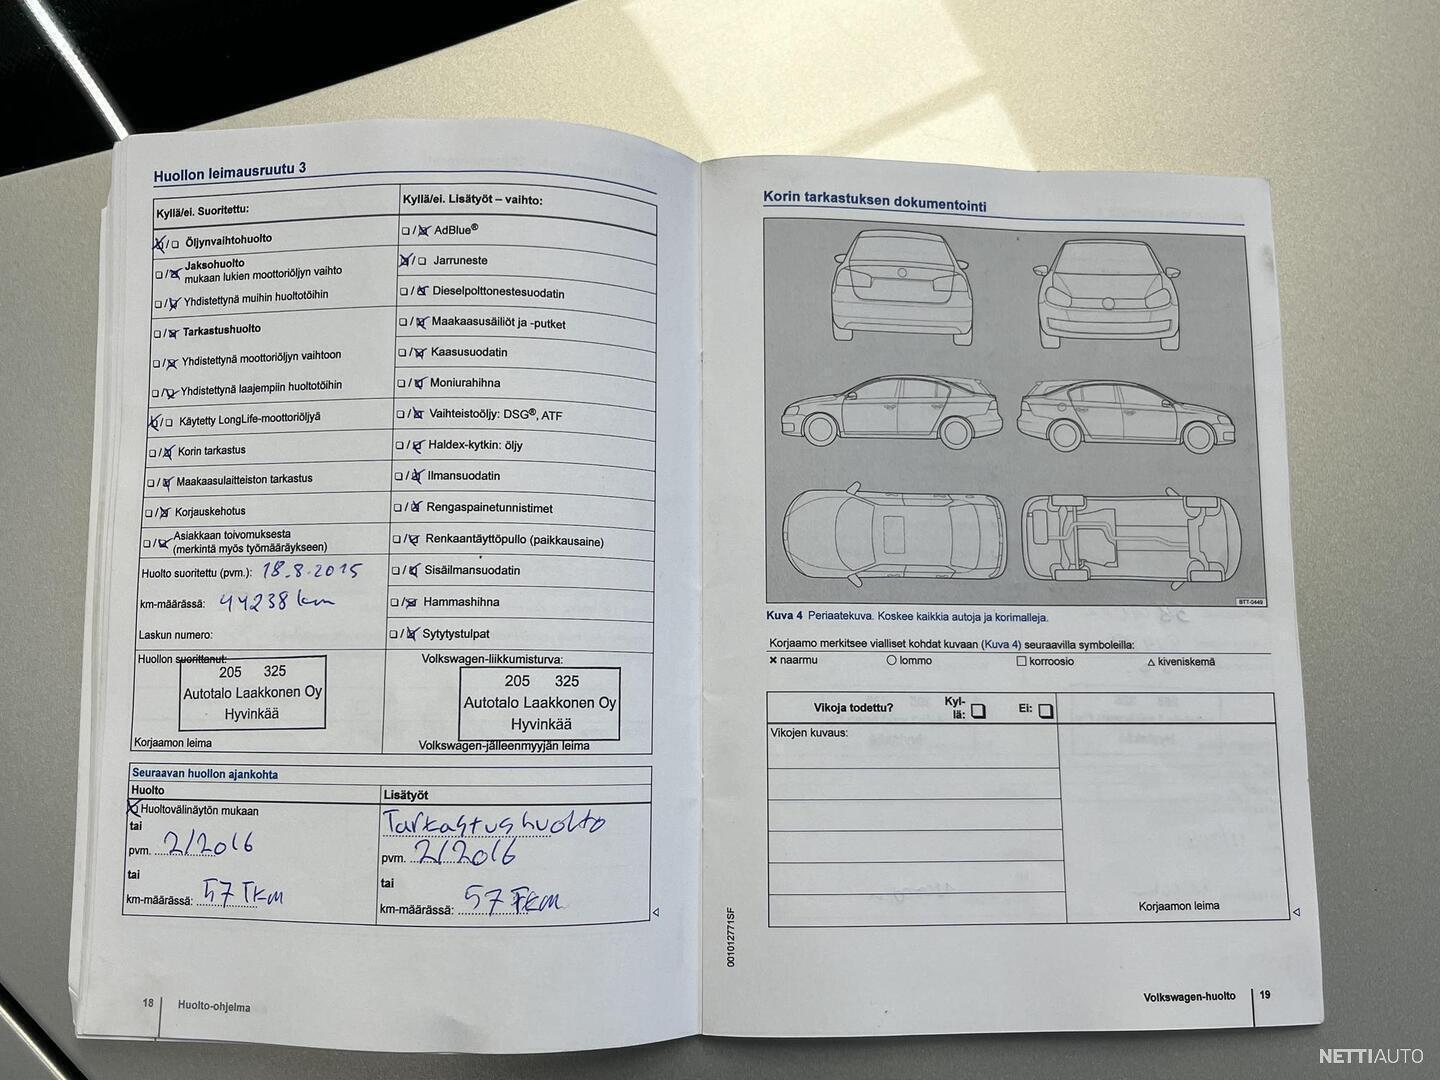 Huollon leimausruutu 3
Kyllä/ei. Suoritettu:
Öljynvaihtohuolto
Jaksohuolto
mukaan lukien moottoriöljyn vaihto
Yhdistettynä muihin huoltotöihin
Tarkastushuolto
Yhdistettynä moottoriöljyn vaihtoon
Yhdistettynä laajempiin huoltotöihin
Käytetty LongLife-moottoriöljyä
Korin tarkastus
Maakaasulaitteiston tarkastus
Korjauskehotus
Asiakkaan toivomuksesta
(merkintä myös työmääräykseen)
Huolto suoritettu (pvm.): 18.8.2015
km-määrässä: 44238 km
Laskun numero:
Kyllä/ei. Lisätyöt – vaihto:
AdBlue®
Jarruneste
Dieselpolttonestesuodatin
Maakaasusäiliöt ja -putket
Kaasusuodatin
Moniurahihna
Vaihteistoöljy: DSG®, ATF
Haldex-kytkin: öljy
Ilmansuodatin
Rengaspainetunnistimet
Renkaantäyttöpullo (paikkausaine)
Sisäilmansuodatin
Hammashihna
Sytytystulpat
Huollon suorittanut:
205 325
Autotalo Laakkonen Oy
Hyvinkää
Korjaamon leima
Volkswagen-liikkumisturva:
205 325
Autotalo Laakkonen Oy
Hyvinkää
Volkswagen-jälleenmyyjän leima
Seuraavan huollon ajankohta
Huolto
Huoltovälinäytön mukaan
tai
pvm. 2/2016
tai
km-määrässä: 57 Tkm
Lisätyöt
Tarkastushuolto
pvm. 2/2016
tai
km-määrässä: 57 Tkm
18 Huolto-ohjelma
Korin tarkastuksen dokumentointi
BTT-0449
Kuva 4 Periaatekuva. Koskee kaikkia autoja ja korimalleja.
Korjaamo merkitsee vialliset kohdat kuvaan (Kuva 4) seuraavilla symboleilla:
× naarmu ○ lommo □ korroosio △ kiveniskemä
Vikoja todettu? Kyl-
lä: Ei:
Vikojen kuvaus:
Korjaamon leima
001012771SF
Volkswagen-huolto 19
NETTIAUTO